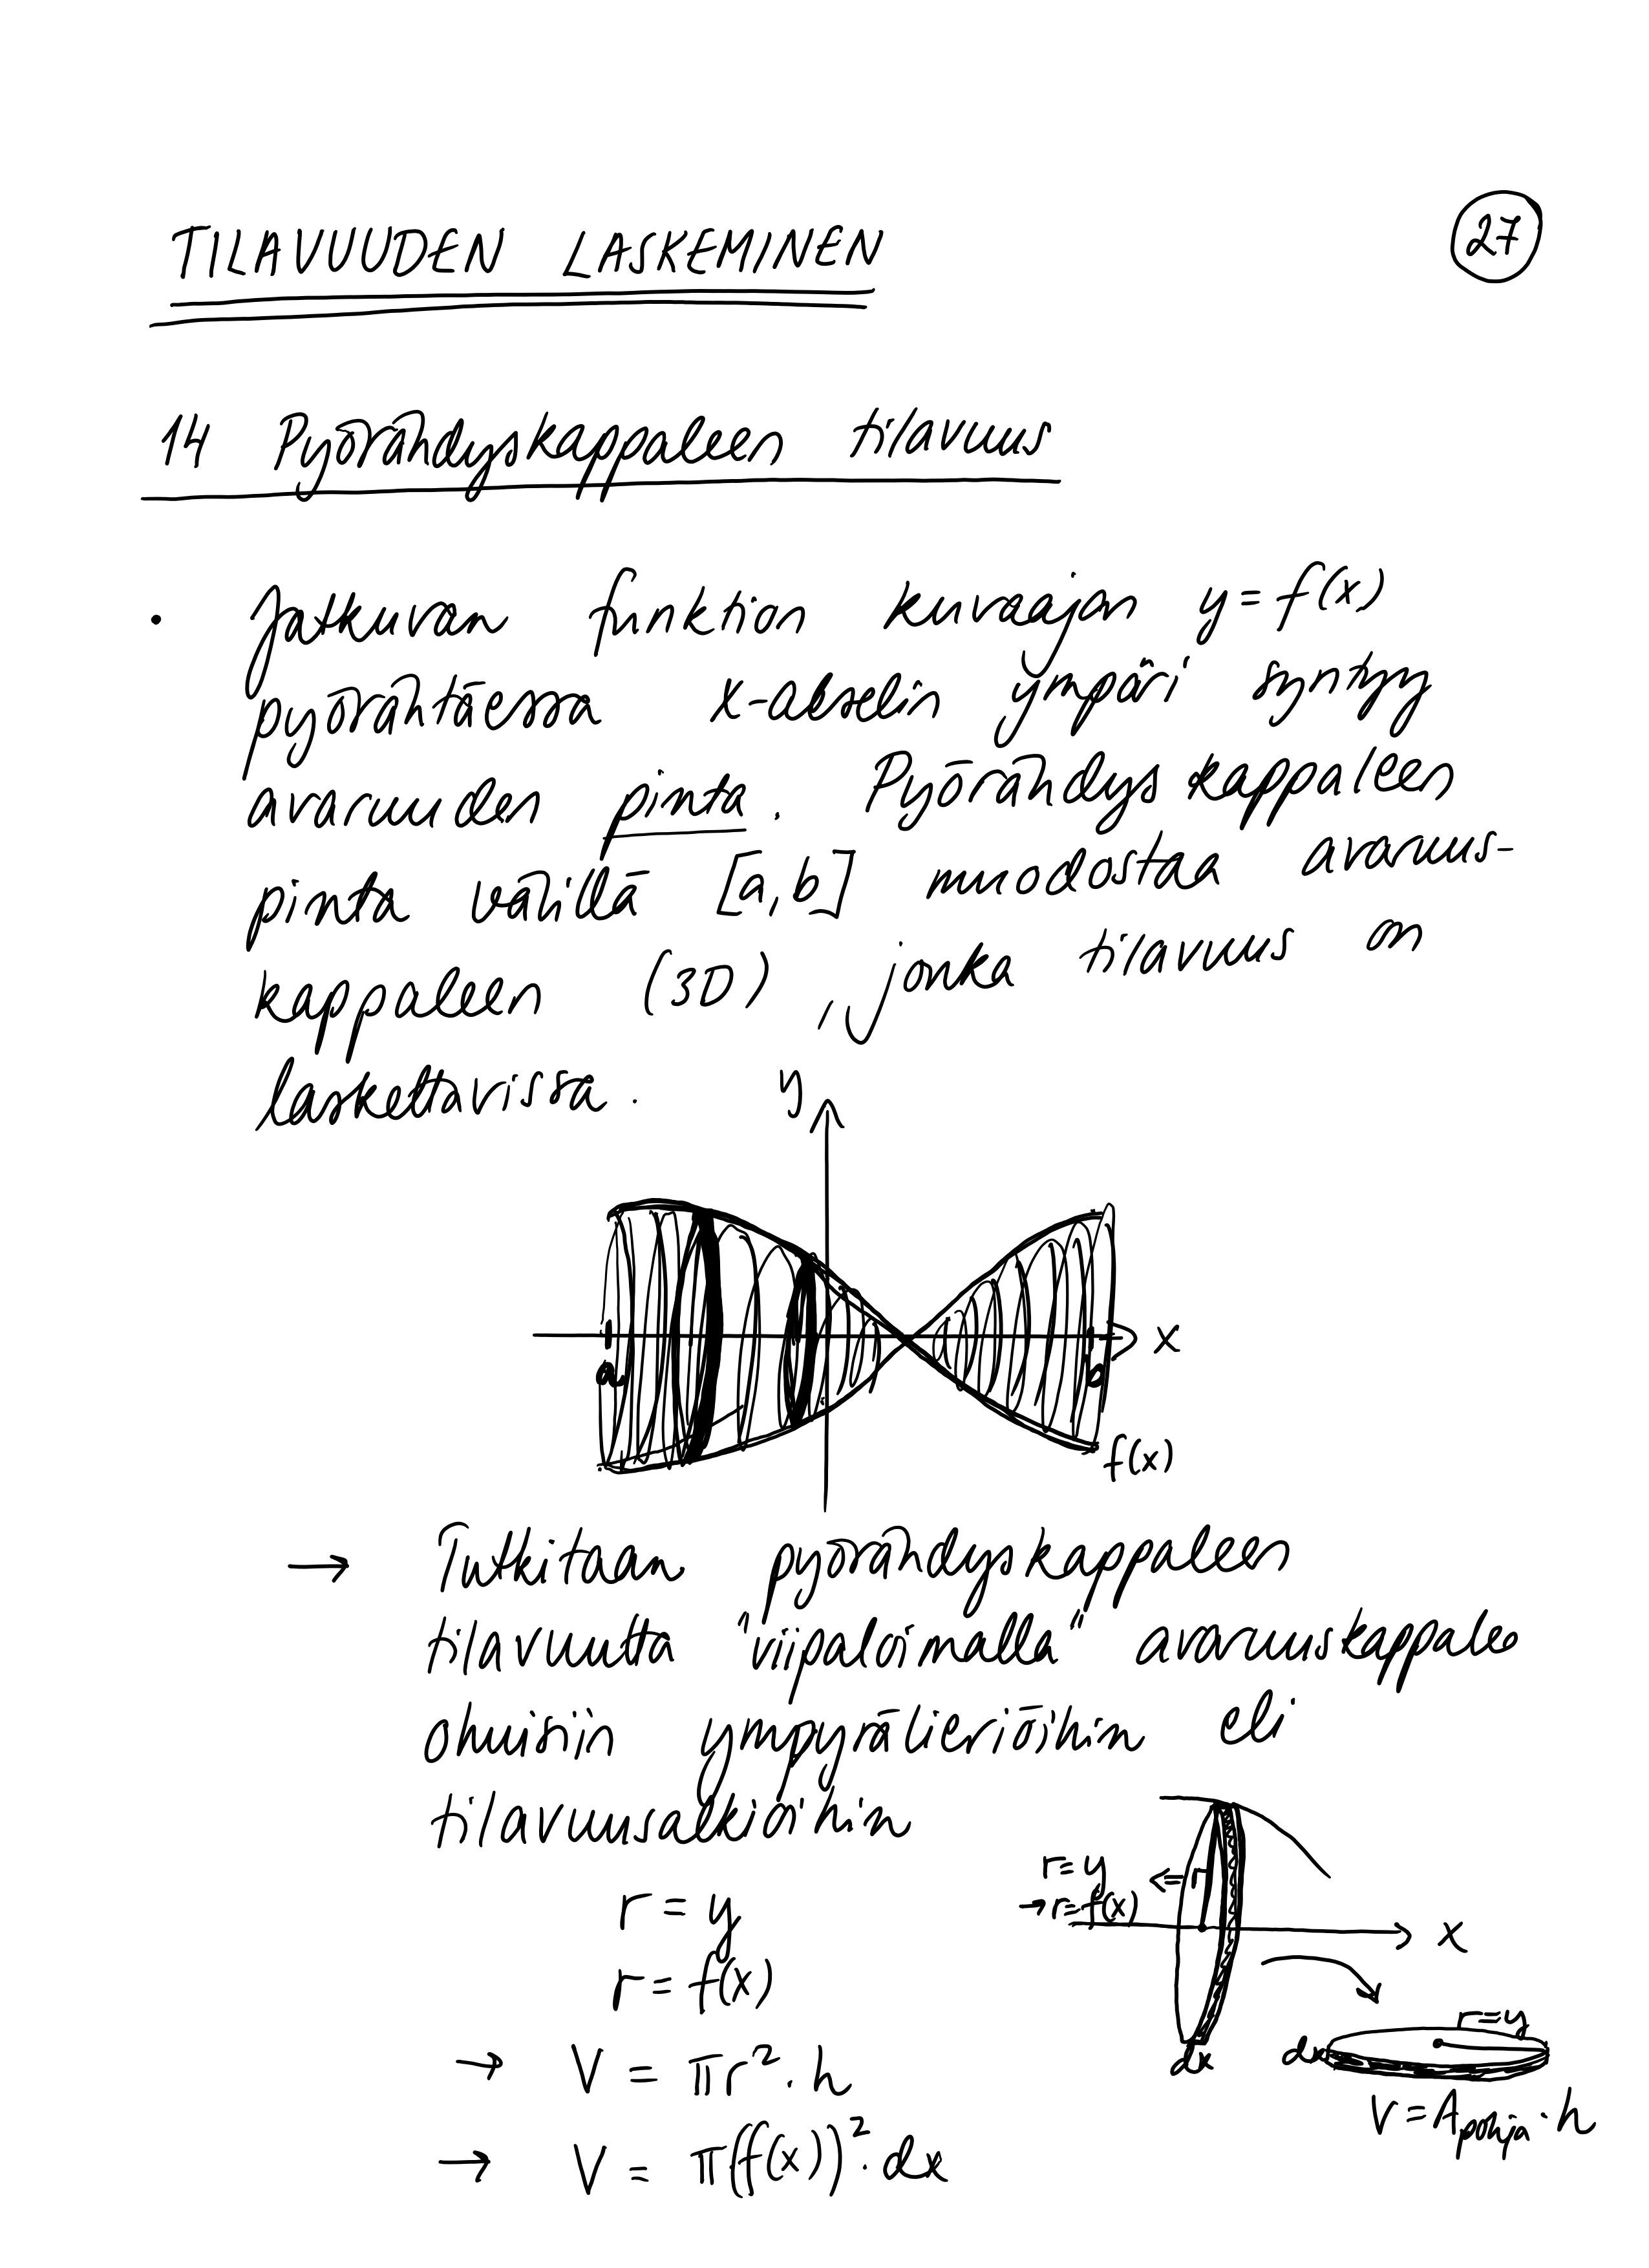 TILAVUUDEN LASKEMINEN
27
14 Pyörähdyskappaleen tilavuus
• Jatkuvan funktion kuvaajan y = f(x)
pyörähtäessä x-akselin ympäri syntyy
avaruuden pinta. Pyörähdyskappaleen
pinta välillä [a,b] muodostaa avaruus-
kappaleen (3D), jonka tilavuus on
laskettavissa.
y
x
a
b
f(x)
→ Tutkitaan pyörähdyskappaleen
tilavuutta "viipaloimalla" avaruuskappale
ohuisiin ympyrälieriöihin eli
tilavuusalkioihin
r = y
r = f(x)
→ V = πr²·h
→ V = π(f(x))²·dx
r=y <= r
→ r=f(x)
x
dx
r=y
dx
V = Apohja·h